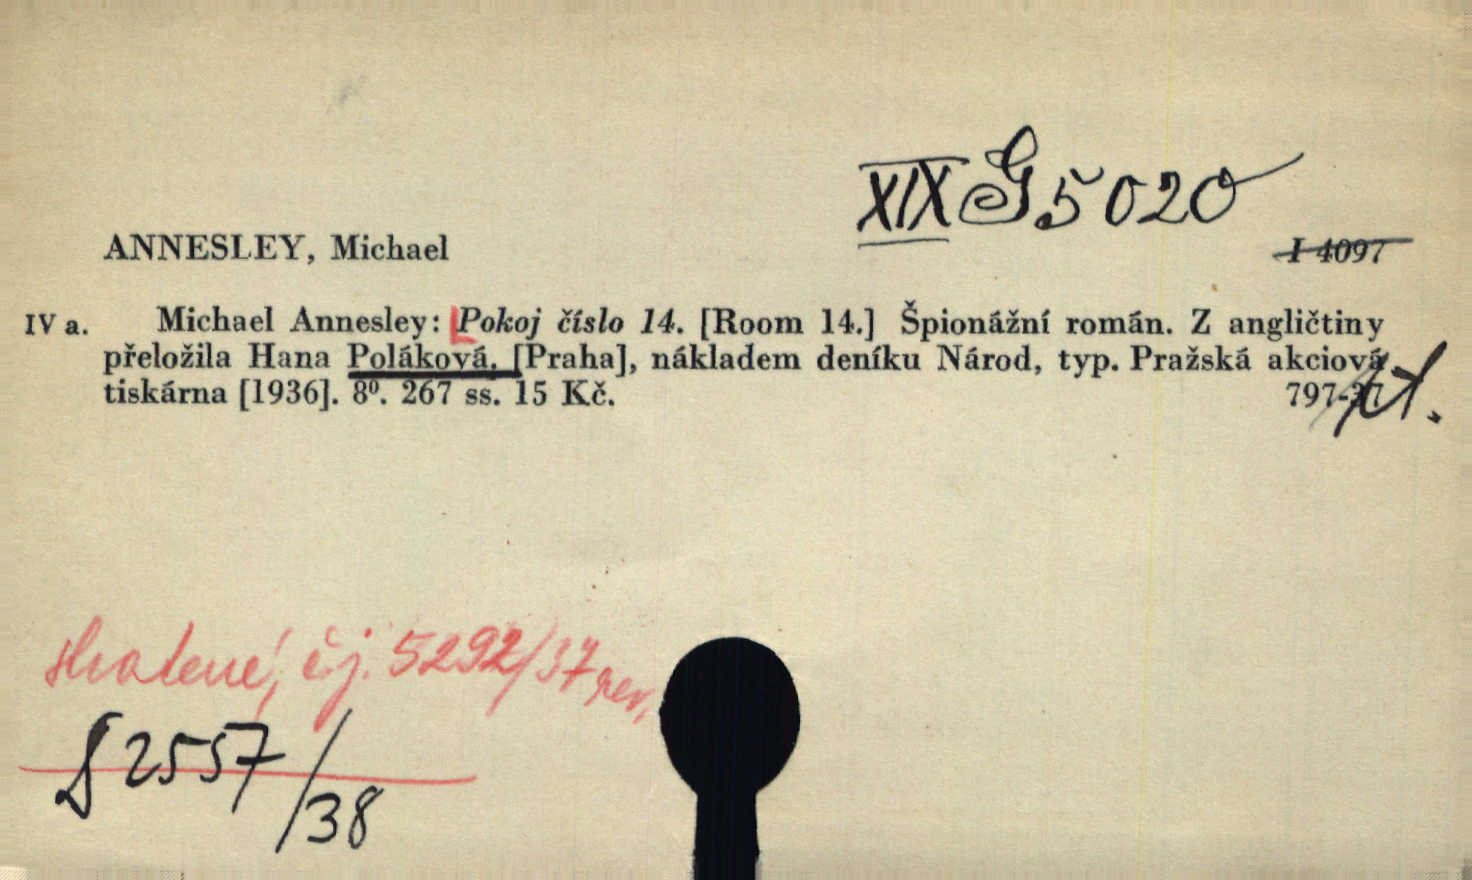 XIX G 5020
ANNESLEY, Michael
I 4097
IV a. Michael Annesley: Pokoj číslo 14. [Room 14.] Špionážní román. Z angličtiny
přeložila Hana Poláková. [Praha], nákladem deníku Národ, typ. Pražská akciová
tiskárna [1936]. 8⁰. 267 ss. 15 Kč. 797-37
č.j. 5292/37
2557/38